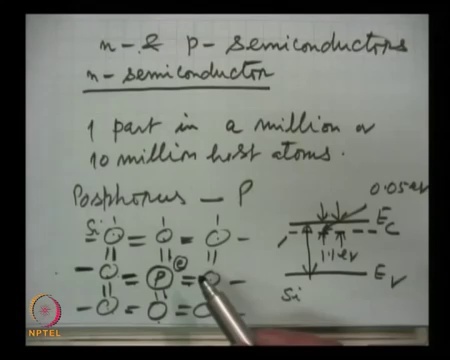 n- & p- semiconductors
n-semiconductor
1 part in a million or
10 million host atoms.
Posphorus — P
0.05 eV
Si
E_C
e
1.1 eV
P
E_V
Si
NPTEL